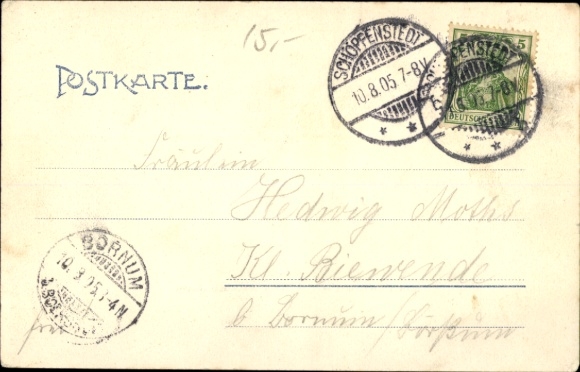 15,-
POSTKARTE.
SCHÖPPENSTEDT
10.8.05. 7-8V.
5
DEUTSCHES
Fräulein
Hedwig Moths
Kl. Biewende
b Bornum/Börßum
BORNUM
10.8.05.1-4N